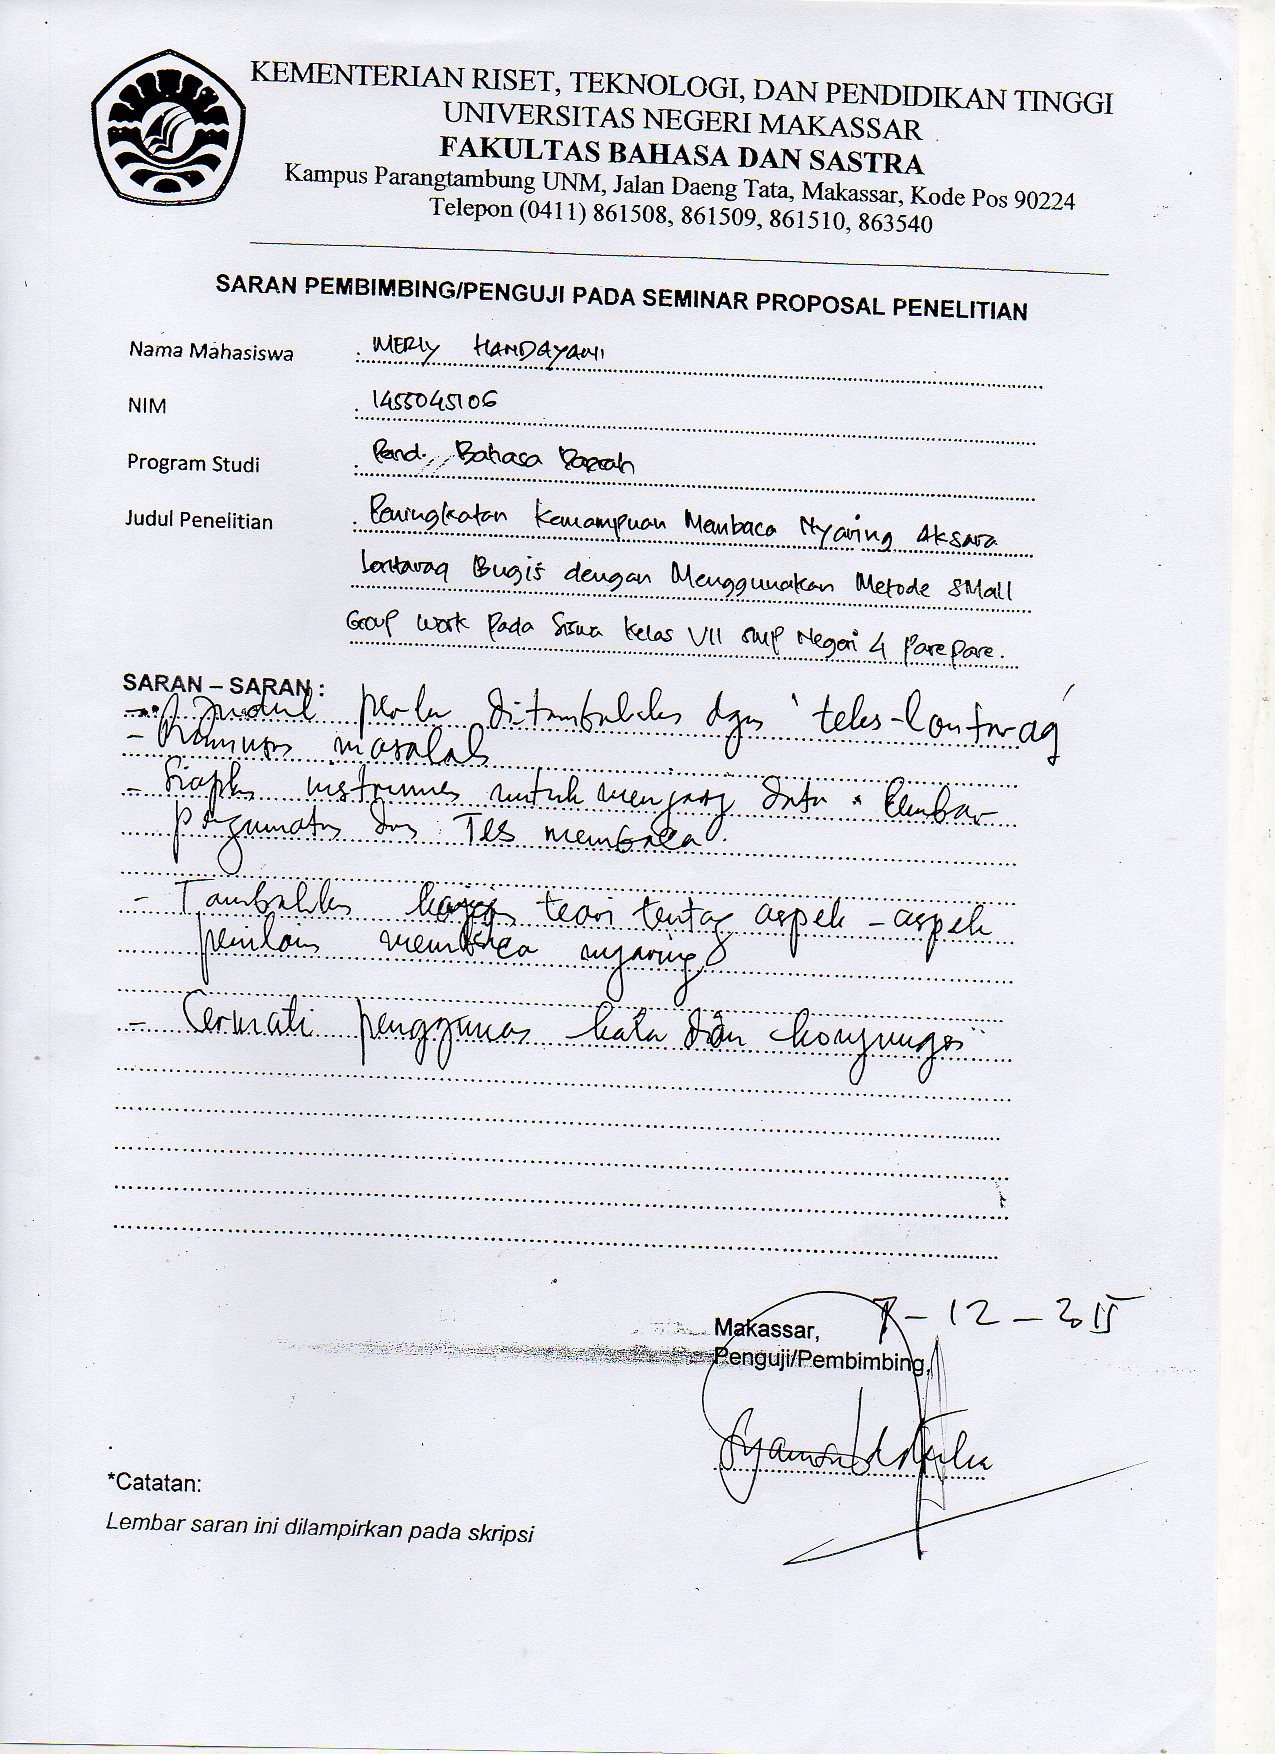 KEMENTERIAN RISET, TEKNOLOGI, DAN PENDIDIKAN TINGGI
UNIVERSITAS NEGERI MAKASSAR
FAKULTAS BAHASA DAN SASTRA
Kampus Parangtambung UNM, Jalan Daeng Tata, Makassar, Kode Pos 90224
Telepon (0411) 861508, 861509, 861510, 863540
SARAN PEMBIMBING/PENGUJI PADA SEMINAR PROPOSAL PENELITIAN
Nama Mahasiswa : MERLY HANDAYANI
NIM : 1455045106
Program Studi : Pend. Bahasa Daerah
Judul Penelitian : Peningkatan Kemampuan Membaca Nyaring Aksara
Lontaraq Bugis dengan Menggunakan Metode Small
Group Work Pada Siswa Kelas VII SMP Negeri 4 Parepare.
SARAN – SARAN :
- Judul perlu ditambahkan dgn 'teks-lontaraq'
- Rumusan masalah
- Siapkan instrumen untuk menjaring data • lembar
pengamatan dan Tes membaca
- Tambahkan kajian teori tentang aspek-aspek
penilaian membaca nyaring
- Cermati penggunaan kata dan konjungsi
Makassar, 7-12-2015
Penguji/Pembimbing,
*Catatan:
Lembar saran ini dilampirkan pada skripsi